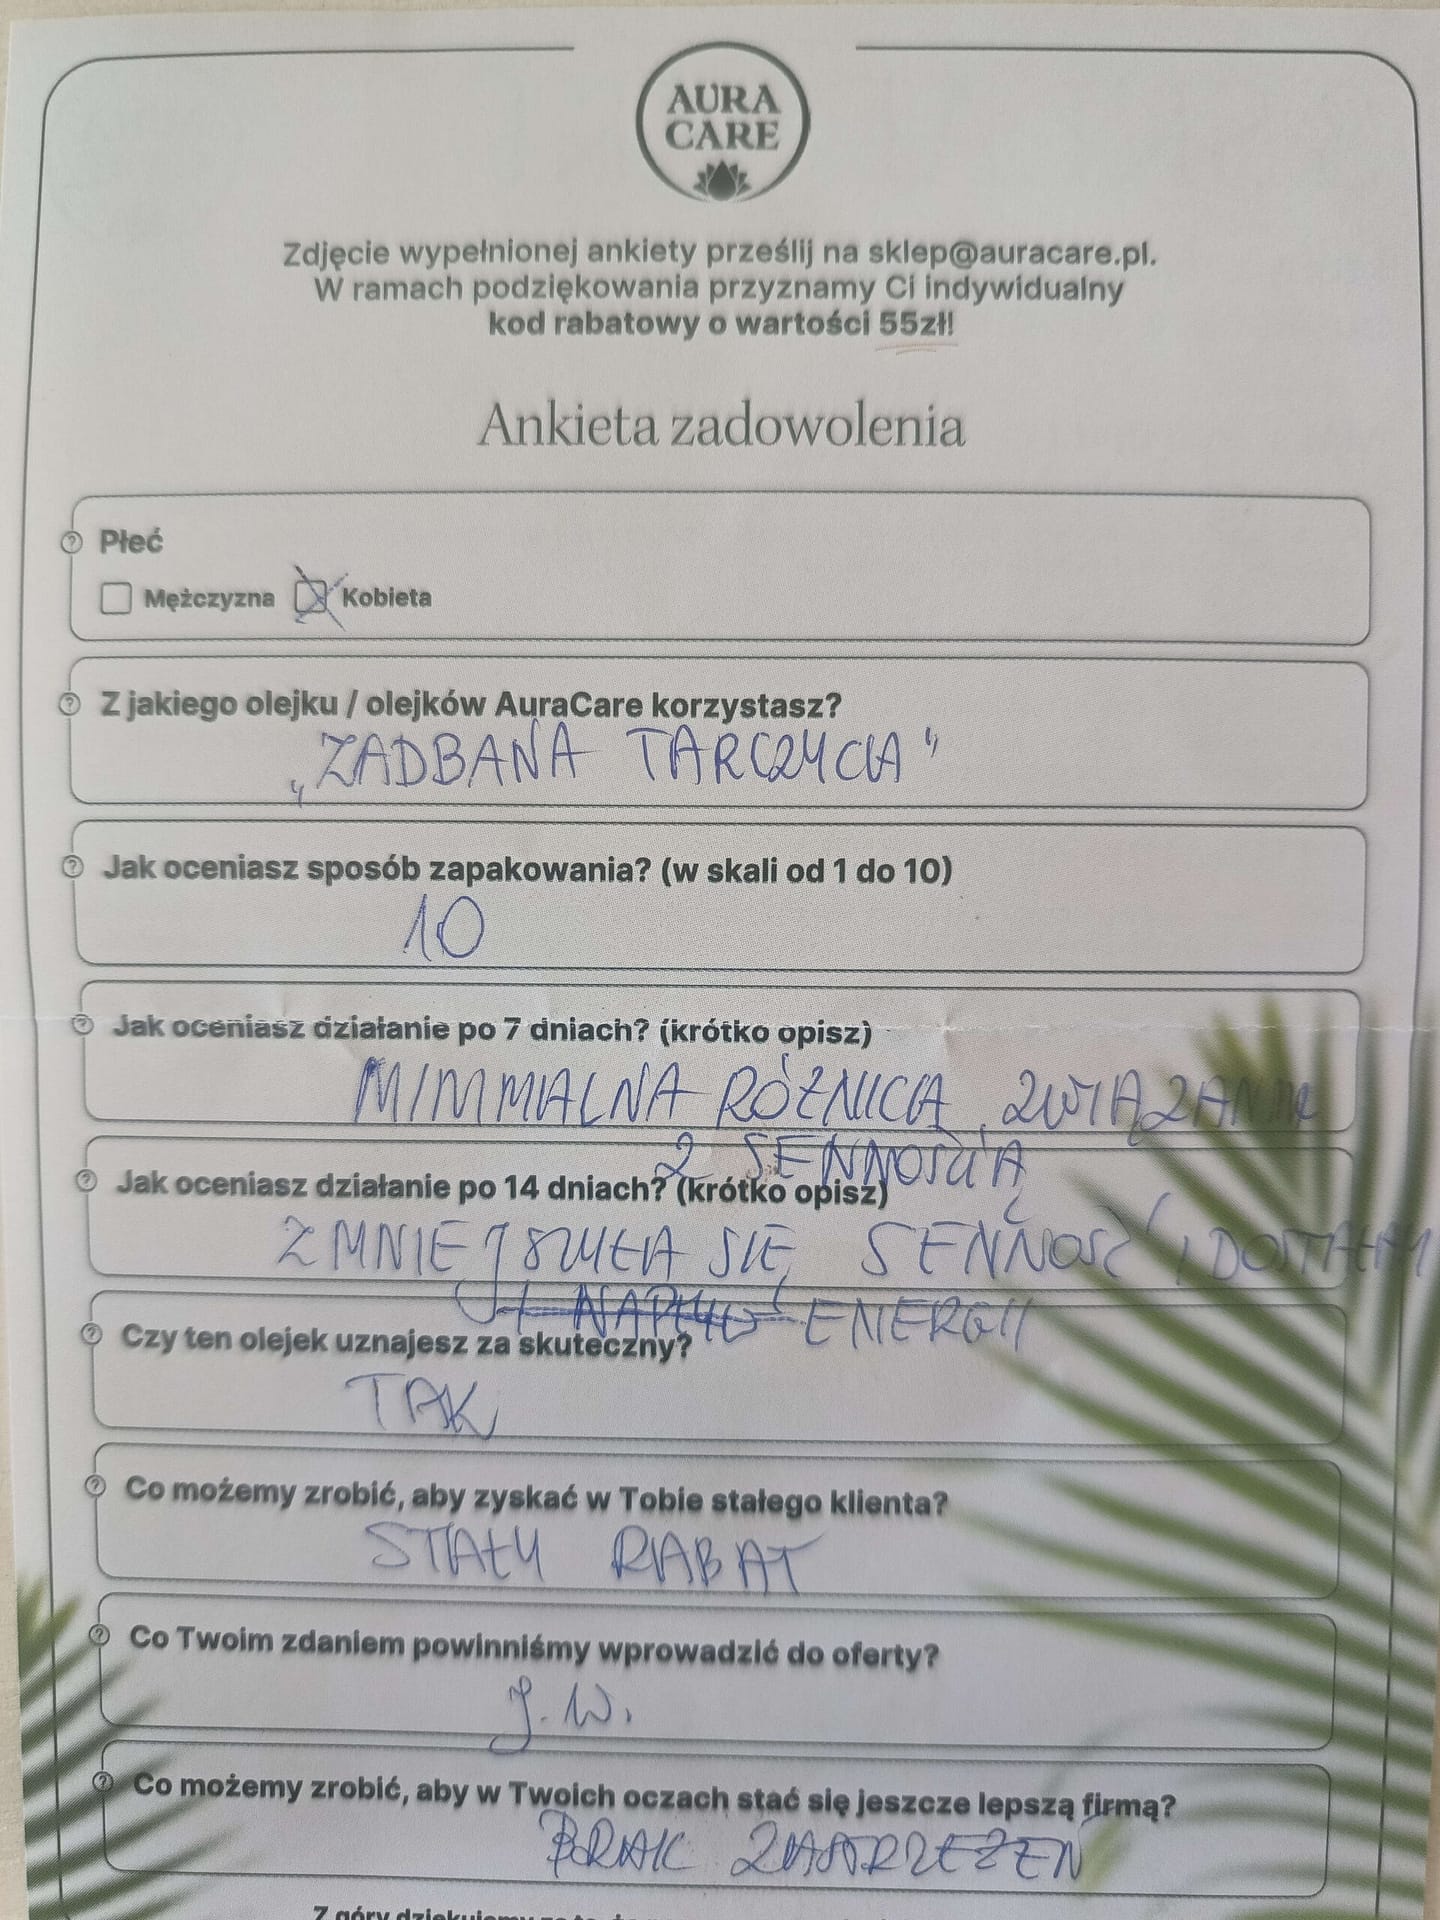 AURA
CARE
Zdjęcie wypełnionej ankiety prześlij na sklep@auracare.pl.
W ramach podziękowania przyznamy Ci indywidualny
kod rabatowy o wartości 55zł!
Ankieta zadowolenia
Płeć
Mężczyzna Kobieta
Z jakiego olejku / olejków AuraCare korzystasz?
„ZADBANA TARCZYCA"
Jak oceniasz sposób zapakowania? (w skali od 1 do 10)
10
Jak oceniasz działanie po 7 dniach? (krótko opisz)
MINIMALNA RÓŻNICA, ZWIĄZANA
Z SENNOŚCIĄ
Jak oceniasz działanie po 14 dniach? (krótko opisz)
ZMNIEJSZYŁA SIĘ SENNOŚĆ I DOSTAŁAM
ENERGII
Czy ten olejek uznajesz za skuteczny?
TAK
Co możemy zrobić, aby zyskać w Tobie stałego klienta?
STAŁY RABAT
Co Twoim zdaniem powinniśmy wprowadzić do oferty?
J.W.
Co możemy zrobić, aby w Twoich oczach stać się jeszcze lepszą firmą?
BRAK ZASTRZEŻEŃ
Z góry dziękujemy za